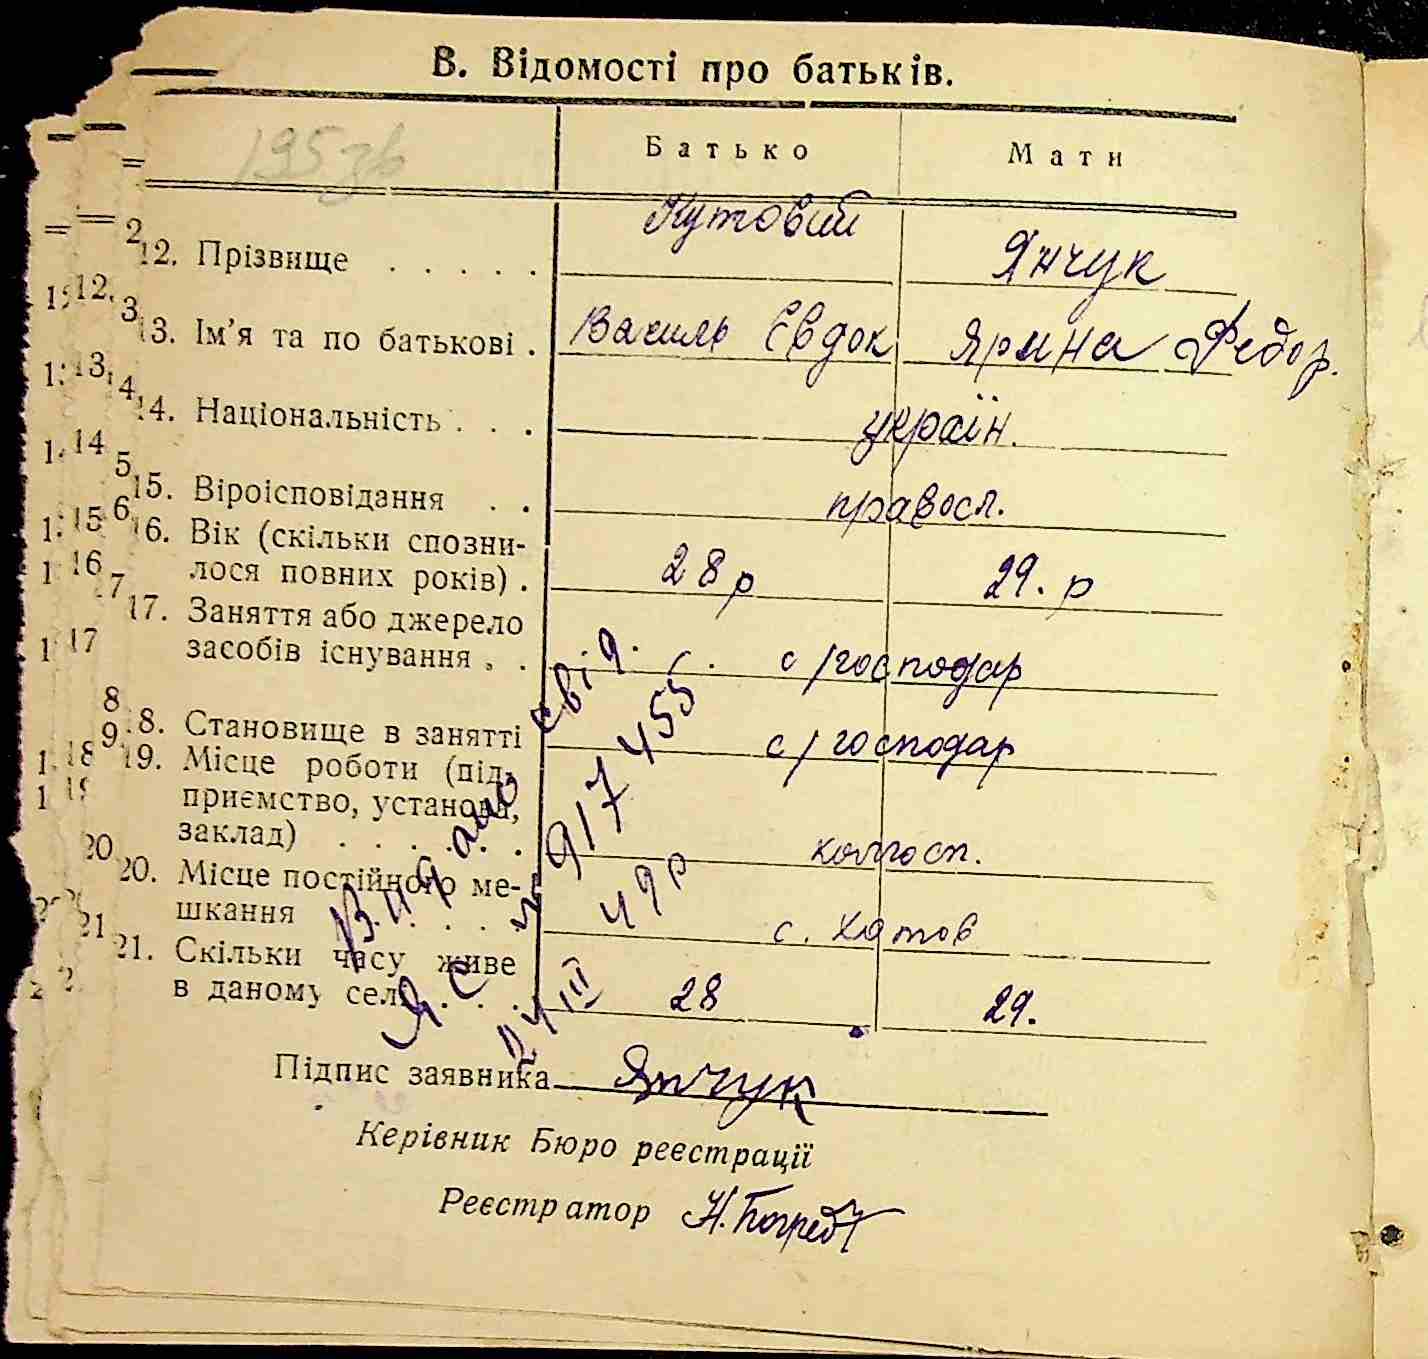 В. Відомості про батьків.
195зв
Батько Мати
12. Прізвище . . . . . Кутовий Янчук
13. Ім'я та по батькові . Василь Євдок Ярина Федор.
14. Національність . . . україн.
15. Віроісповідання . . правосл.
16. Вік (скільки спозни-
лося повних років) . 28 р 29. р
17. Заняття або джерело
засобів існування . . с/господар
18. Становище в занятті с/господар
19. Місце роботи (під-
приємство, установа,
заклад) . . . . . . колгосп.
20. Місце постійного ме-
шкання . . . . с. Хотов
21. Скільки часу живе
в даному селі . . . 28 29.
Видано свід.
ЯС № 917455
24 III 49 р
Підпис заявника Янчук
Керівник Бюро реєстрації
Реєстратор